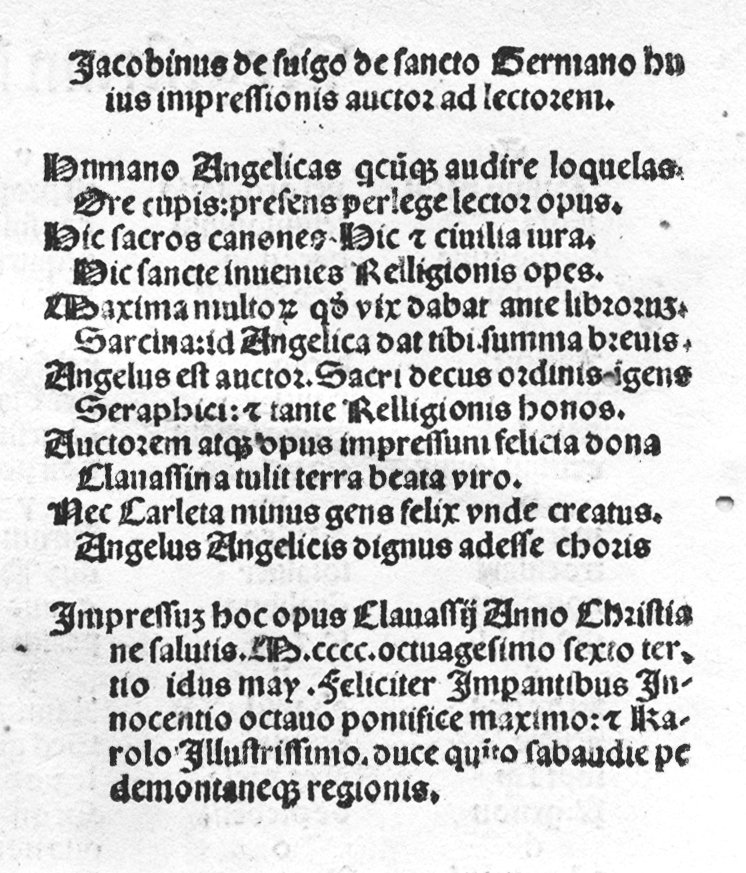 Jacobinus de suigo de sancto Germano hu
ius impressionis auctor ad lectorem.
Humano Angelicas qcũqꝫ audire loquelas.
Ore cupis: presens perlege lector opus.
Hic sacros canones. Hic ⁊ ciuilia iura.
Hic sancte inuenies Relligionis opes.
Maxima multoꝝ qđ vix dabat ante libroruꝫ.
Sarcina: id Angelica dat tibi summa breuis.
Angelus est auctor. Sacri decus ordinis igens
Seraphici: ⁊ tante Relligionis honos.
Auctorem atqꝫ opus impressum felicia dona
Clauassina tulit terra beata viro.
Nec Carleta minus gens felix vnde creatus.
Angelus Angelicis dignus adesse choris
Impressuꝫ hoc opus Clauassij Anno Christia
ne salutis. M.cccc.octuagesimo sexto ter-
tio idus may. Feliciter Imꝑantibus In-
nocentio octauo pontifice maximo: ⁊ Ka-
rolo Illustrissimo. duce sabaudie pe
demontaneqꝫ regionis.